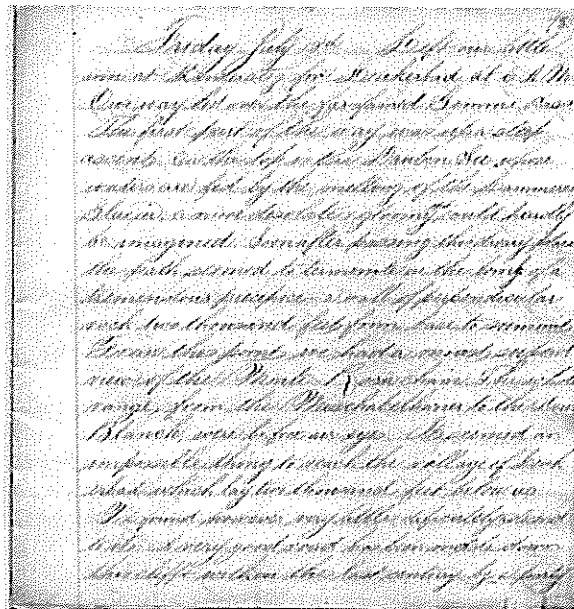 98
Friday July 3rd Left our little
inn at Kandersteg for Leukerbad at 9 A.M.
Our way led over the far famed Gemmi Pass
The first part of the way was up a steep
ascent, on the top is the Dauben See whose
waters are fed by the melting of the Lammeren
Glacier, a more desolate & gloomy could hardly
be imagined. Soon after passing this dreary place
the path seemed to terminate on the brink of a
tremendous precipice - a wall of perpendicular
rock two thousand feet from base to summit
From this point we had a most superb
view of the Monte Rosa chain. The whole
range, from the Mischabelhörner to the Dent
Blanch, were before our eyes. It seemed an
impossible thing to reach the village of Leuk
erbad which lay two thousand feet below us
I found however very little difficulty
A very good road has been made down
this cliff within the last century by a party